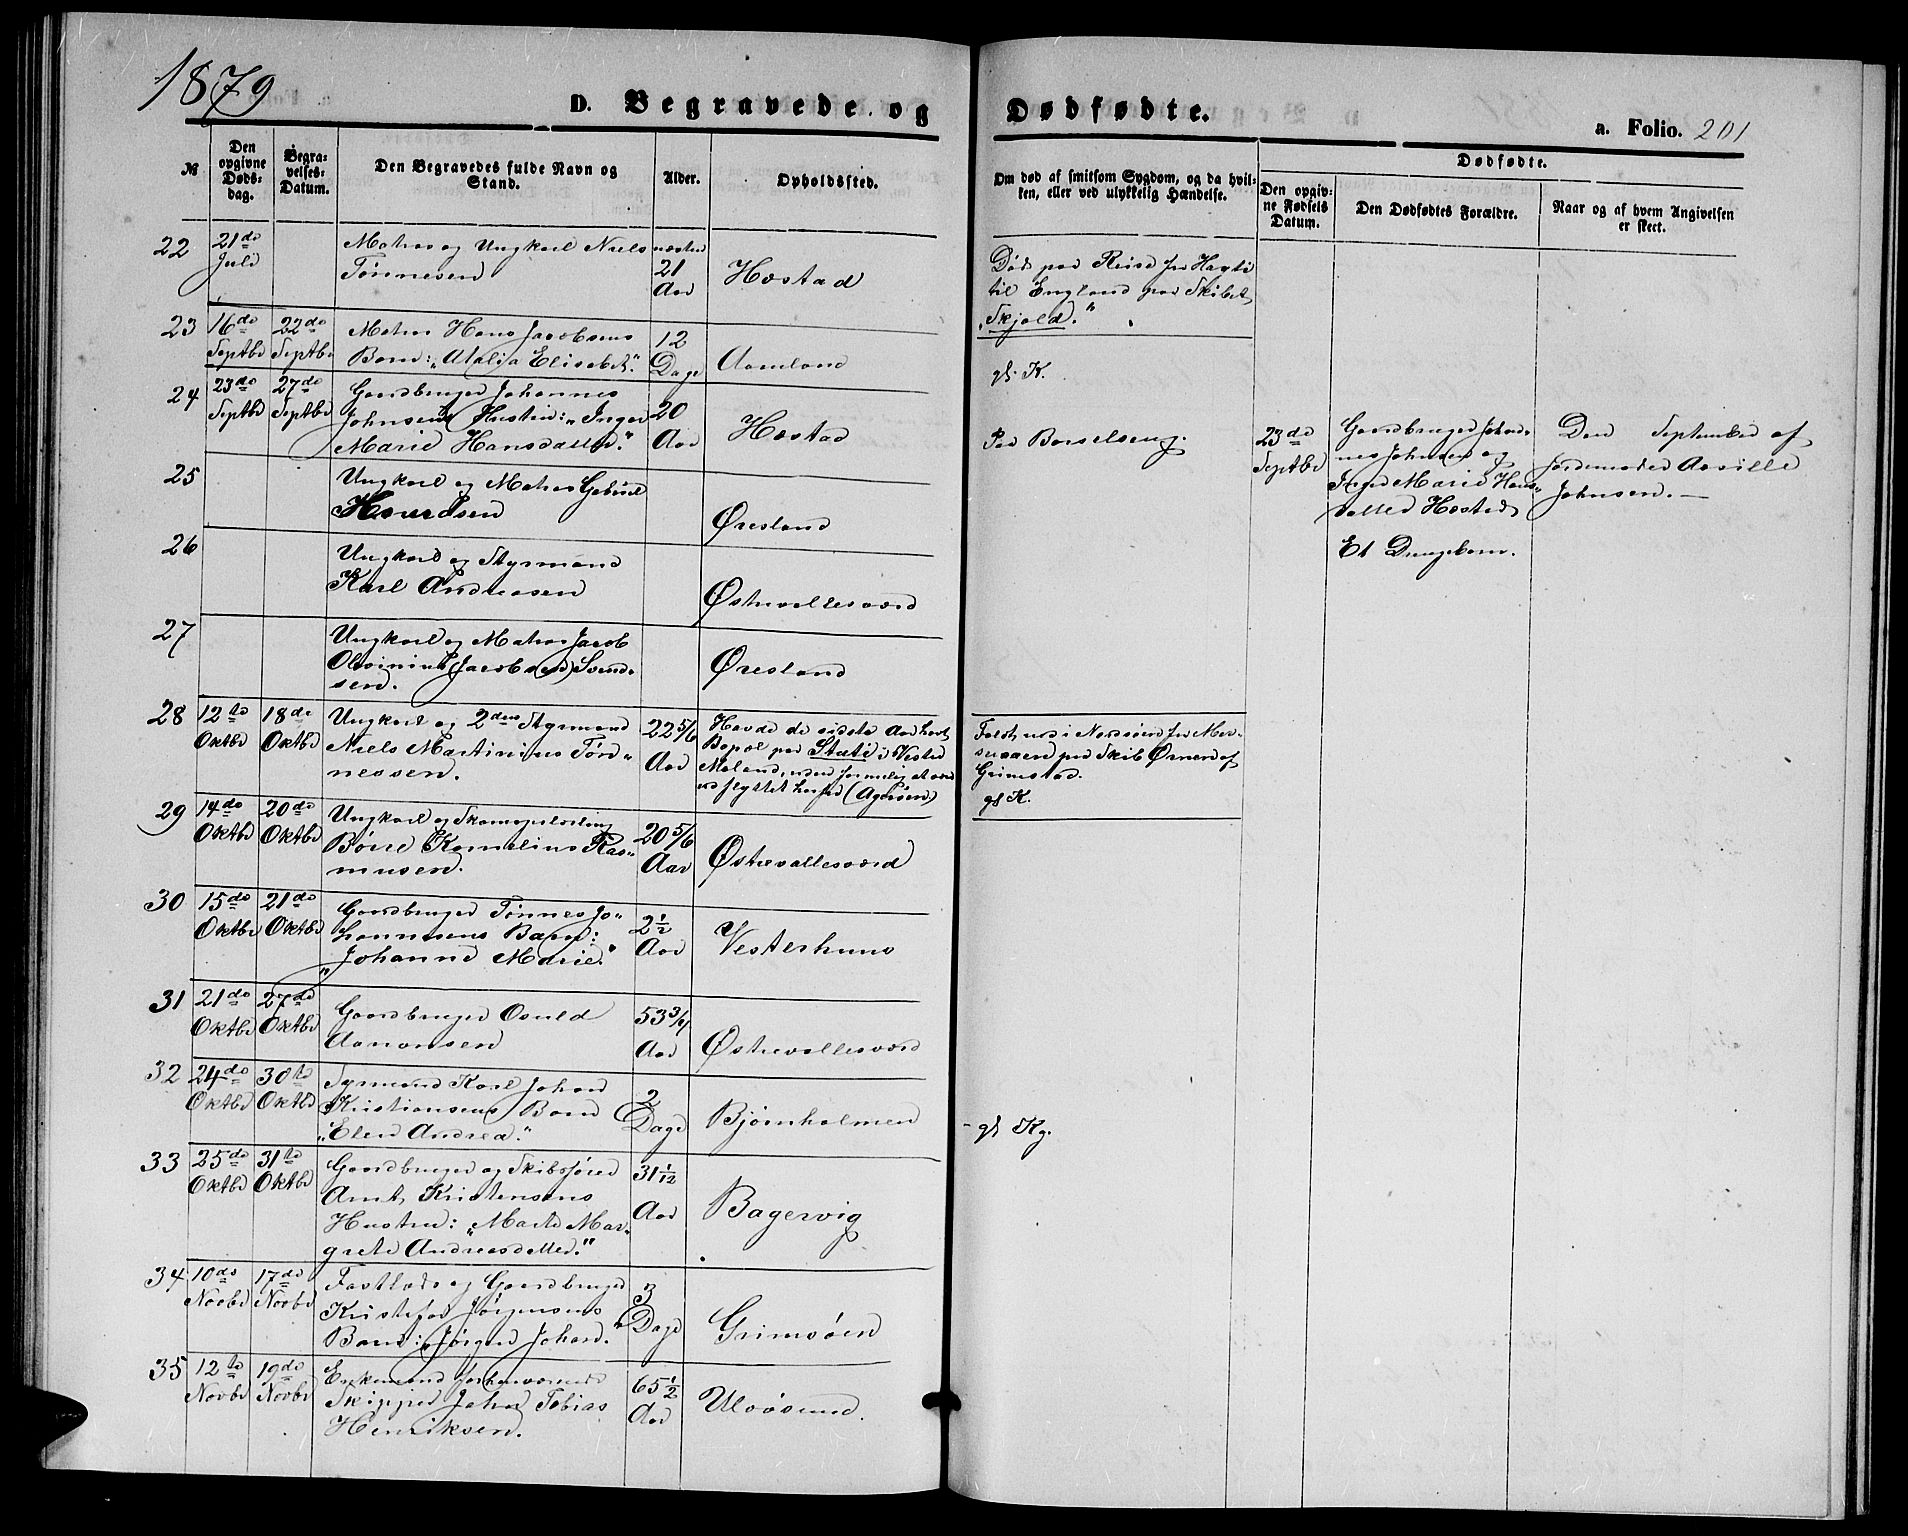 1879
D. Begravede og Dødfødte.
a. Folio. 201
№
Den opgivne Dødsdag.
Begravelses-Datum.
Den Begravedes fulde Navn og Stand.
Alder.
Opholdssted.
Om død af smitsom Sygdom, og da hvilken, eller ved ulykkelig Hændelse.
Dødfødte.
Den opgivne Fødsels Datum.
Den Dødfødtes Forældre.
Naar og af hvem Angivelsen er skeet.
22
21de Juli
Matros og Ungkarl Niels
Tønnesen
næsten
21
Aar
Hæstad
Død paa Reise fra Hayti
til England paa Skibet
„Skjold.“
23
16de Septbr
22de Septbr
Matros Hans Jacobsens
Barn: „Atalia Elisabet.“
12
Dage
Aamland
gl. K.
24
23de Septbr
27de Septbr
Gaardbruger Johannes
Johnsens Hustru: „Inger
Marie Hansdatter.“
20
Aar
Hæstad
Paa Barselseng.
23de
Septbr
Gaardbruger Johan-
nes Johnsen og
Inger Marie Hans-
datter Hæstad
Et Drengebarn.
Den September af
Jordemoder Aasille
Johnsen.
25
Ungkarl og Matros Gabriel
Knudsen
Øresland
26
Ungkarl og Styrmand
Karl Andreasen
Østrevallesværd
27
Ungkarl og Matros Jacob
Olavinius (Jacobsen) Svend-
sen.
Øresland
28
12te Oktbr
18de Oktbr
Ungkarl og 2den Styrmand
Niels Martinius Tøn-
nessen.
22 5/6
Aar
Havde de sidste Aar havt
Bopæl paa i Vestre
Moland, uden formelig at være
udflyttet herfra
i Nordsøen fra
paa Skib Ørnen af
Grimstad.
gl K.
29
14de Oktbr
20de Oktbr
Ungkarl og Skomagerlærling
Børre Kornelius Ras-
musen.
20 5/6
Aar
Østrevallesværd
30
15de Oktbr
21de Oktbr
Gaardbruger Tønnes Jo-
hannesens Barn:
„Johanne Marie.“
2½
Aar
Vesterhuus
31
21de Oktbr
27de Oktbr
Gaardbruger Osuld
Aanonsen
53 3/4
Aar
Østrevallesværd
32
24de Oktbr
30te Oktbr
Styrmand Karl Johan
Kristiansens Barn
„Elen Andrea.“
2
Dage
Bjørnholmen
gl Kg.
33
25de Oktbr
31te Oktbr
Gaardbruger og Skibsfører
Arnt Kristensens
Hustru: „Marte Mar-
grete Andreasdatter.“
31 1/12
Aar
Bagervig
34
10de Novbr
17de Novbr
Fastlods og Gaardbruger
Kristofer Jørgensens
Barn: „Jørgen Johan.“
3
Dage
Grimsøen
35
12te Novbr
19de Novbr
Enkemand forhenværende
Skipper John Tobias
Henriksen.
65 ½
Aar
Ulvøsund.